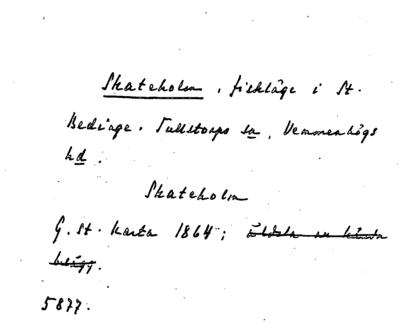 Skateholm, fiskläge i St.
Beddinge. Tullstorps sn, Vemmenhögs
hd.
Skateholm
G. st. karta 1864; äldsta nu kända
belägg.
5877.